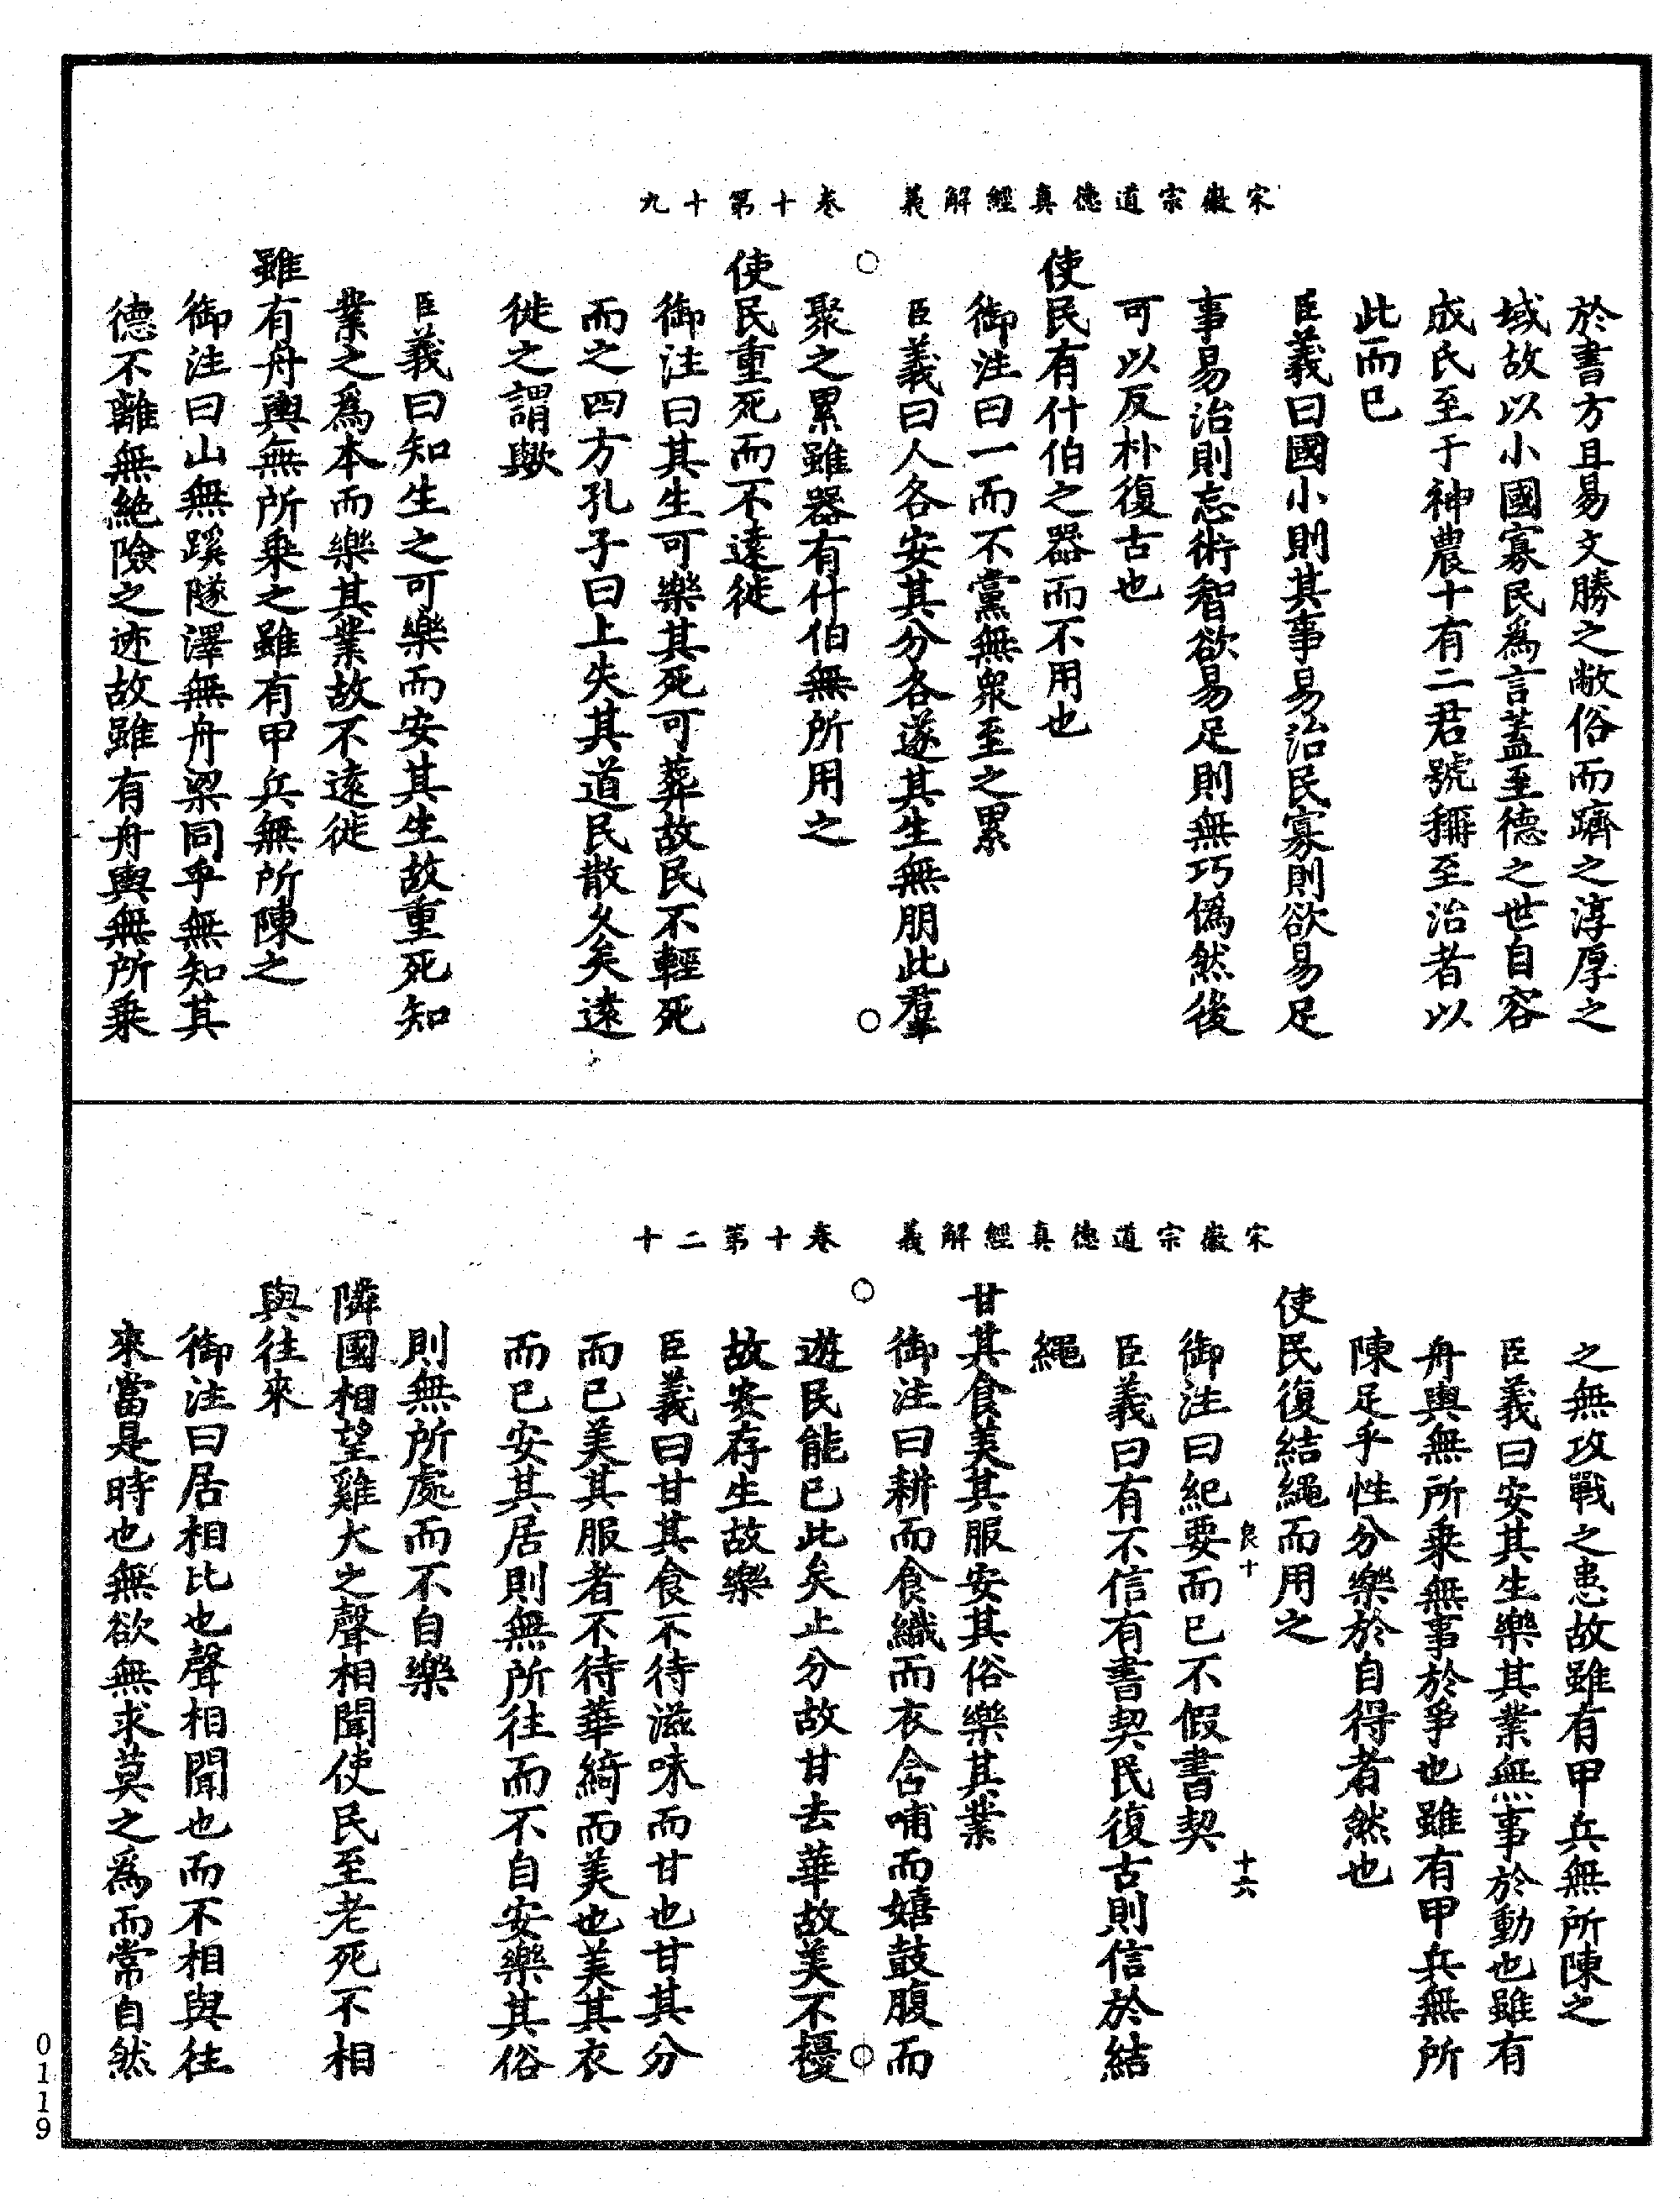 宋徽宗道德真經解義　卷十第十九
於書方且易文勝之敝俗而躋之淳厚之
域故以小國寡民爲言蓋至德之世自容
成氏至于神農十有二君號稱至治者以
此而已
臣義曰國小則其事易治民寡則欲易足
事易治則忘術智欲易足則無巧僞然後
可以反朴復古也
使民有什伯之器而不用也
御注曰一而不黨無衆至之累
臣義曰人各安其分各遂其生無朋此羣
聚之累雖器有什伯無所用之
使民重死而不遠徙
御注曰其生可樂其死可葬故民不輕死
而之四方孔子曰上失其道民散久矣遠
徙之謂歟
臣義曰知生之可樂而安其生故重死知
業之爲本而樂其業故不遠徙
雖有舟輿無所乘之雖有甲兵無所陳之
御注曰山無蹊隧澤無舟梁同乎無知其
德不離無絶險之迹故雖有舟輿無所乘
宋徽宗道德真經解義　卷十第二十
之無攻戰之患故雖有甲兵無所陳之
臣義曰安其生樂其業無事於動也雖有
舟輿無所乘無事於爭也雖有甲兵無所
陳足乎性分樂於自得者然也
使民復結繩而用之
良十　十六
御注曰紀要而已不假書契
臣義曰有不信有書契民復古則信於結
繩
甘其食美其服安其俗樂其業
御注曰耕而食織而衣含哺而嬉鼓腹而
遊民能已此矣止分故甘去華故美不擾
故安存生故樂
臣義曰甘其食不待滋味而甘也甘其分
而已美其服者不待華綺而美也美其衣
而已安其居則無所往而不自安樂其俗
則無所處而不自樂
隣國相望雞犬之聲相聞使民至老死不相
與往來
御注曰居相比也聲相聞也而不相與往
來當是時也無欲無求莫之爲而常自然
0119